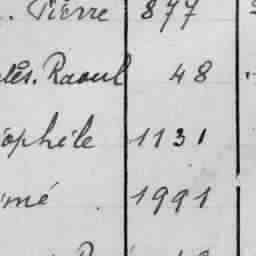 Pierre 877
Raoul 48
ophile 1131
mé 1991